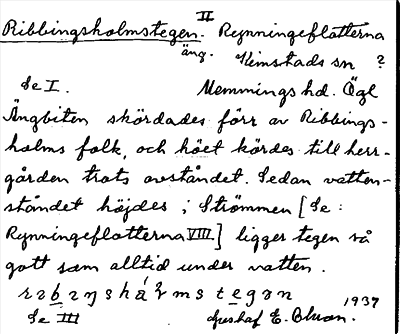 II
Ribbingsholmstegen. Rynningeflatterna
äng. Kimstads sn ?
Se I. Memmings hd. Ögl
Ängbiten skördades förr av Ribbings-
holms folk, och höet kördes till herr-
gården trots avståndet. Sedan vatten-
ståndet höjdes i Strömmen [Se:
Rynningeflatterna VIII.] ligger tegen så
gott som alltid under vatten.
1937
Se III Gustaf E.